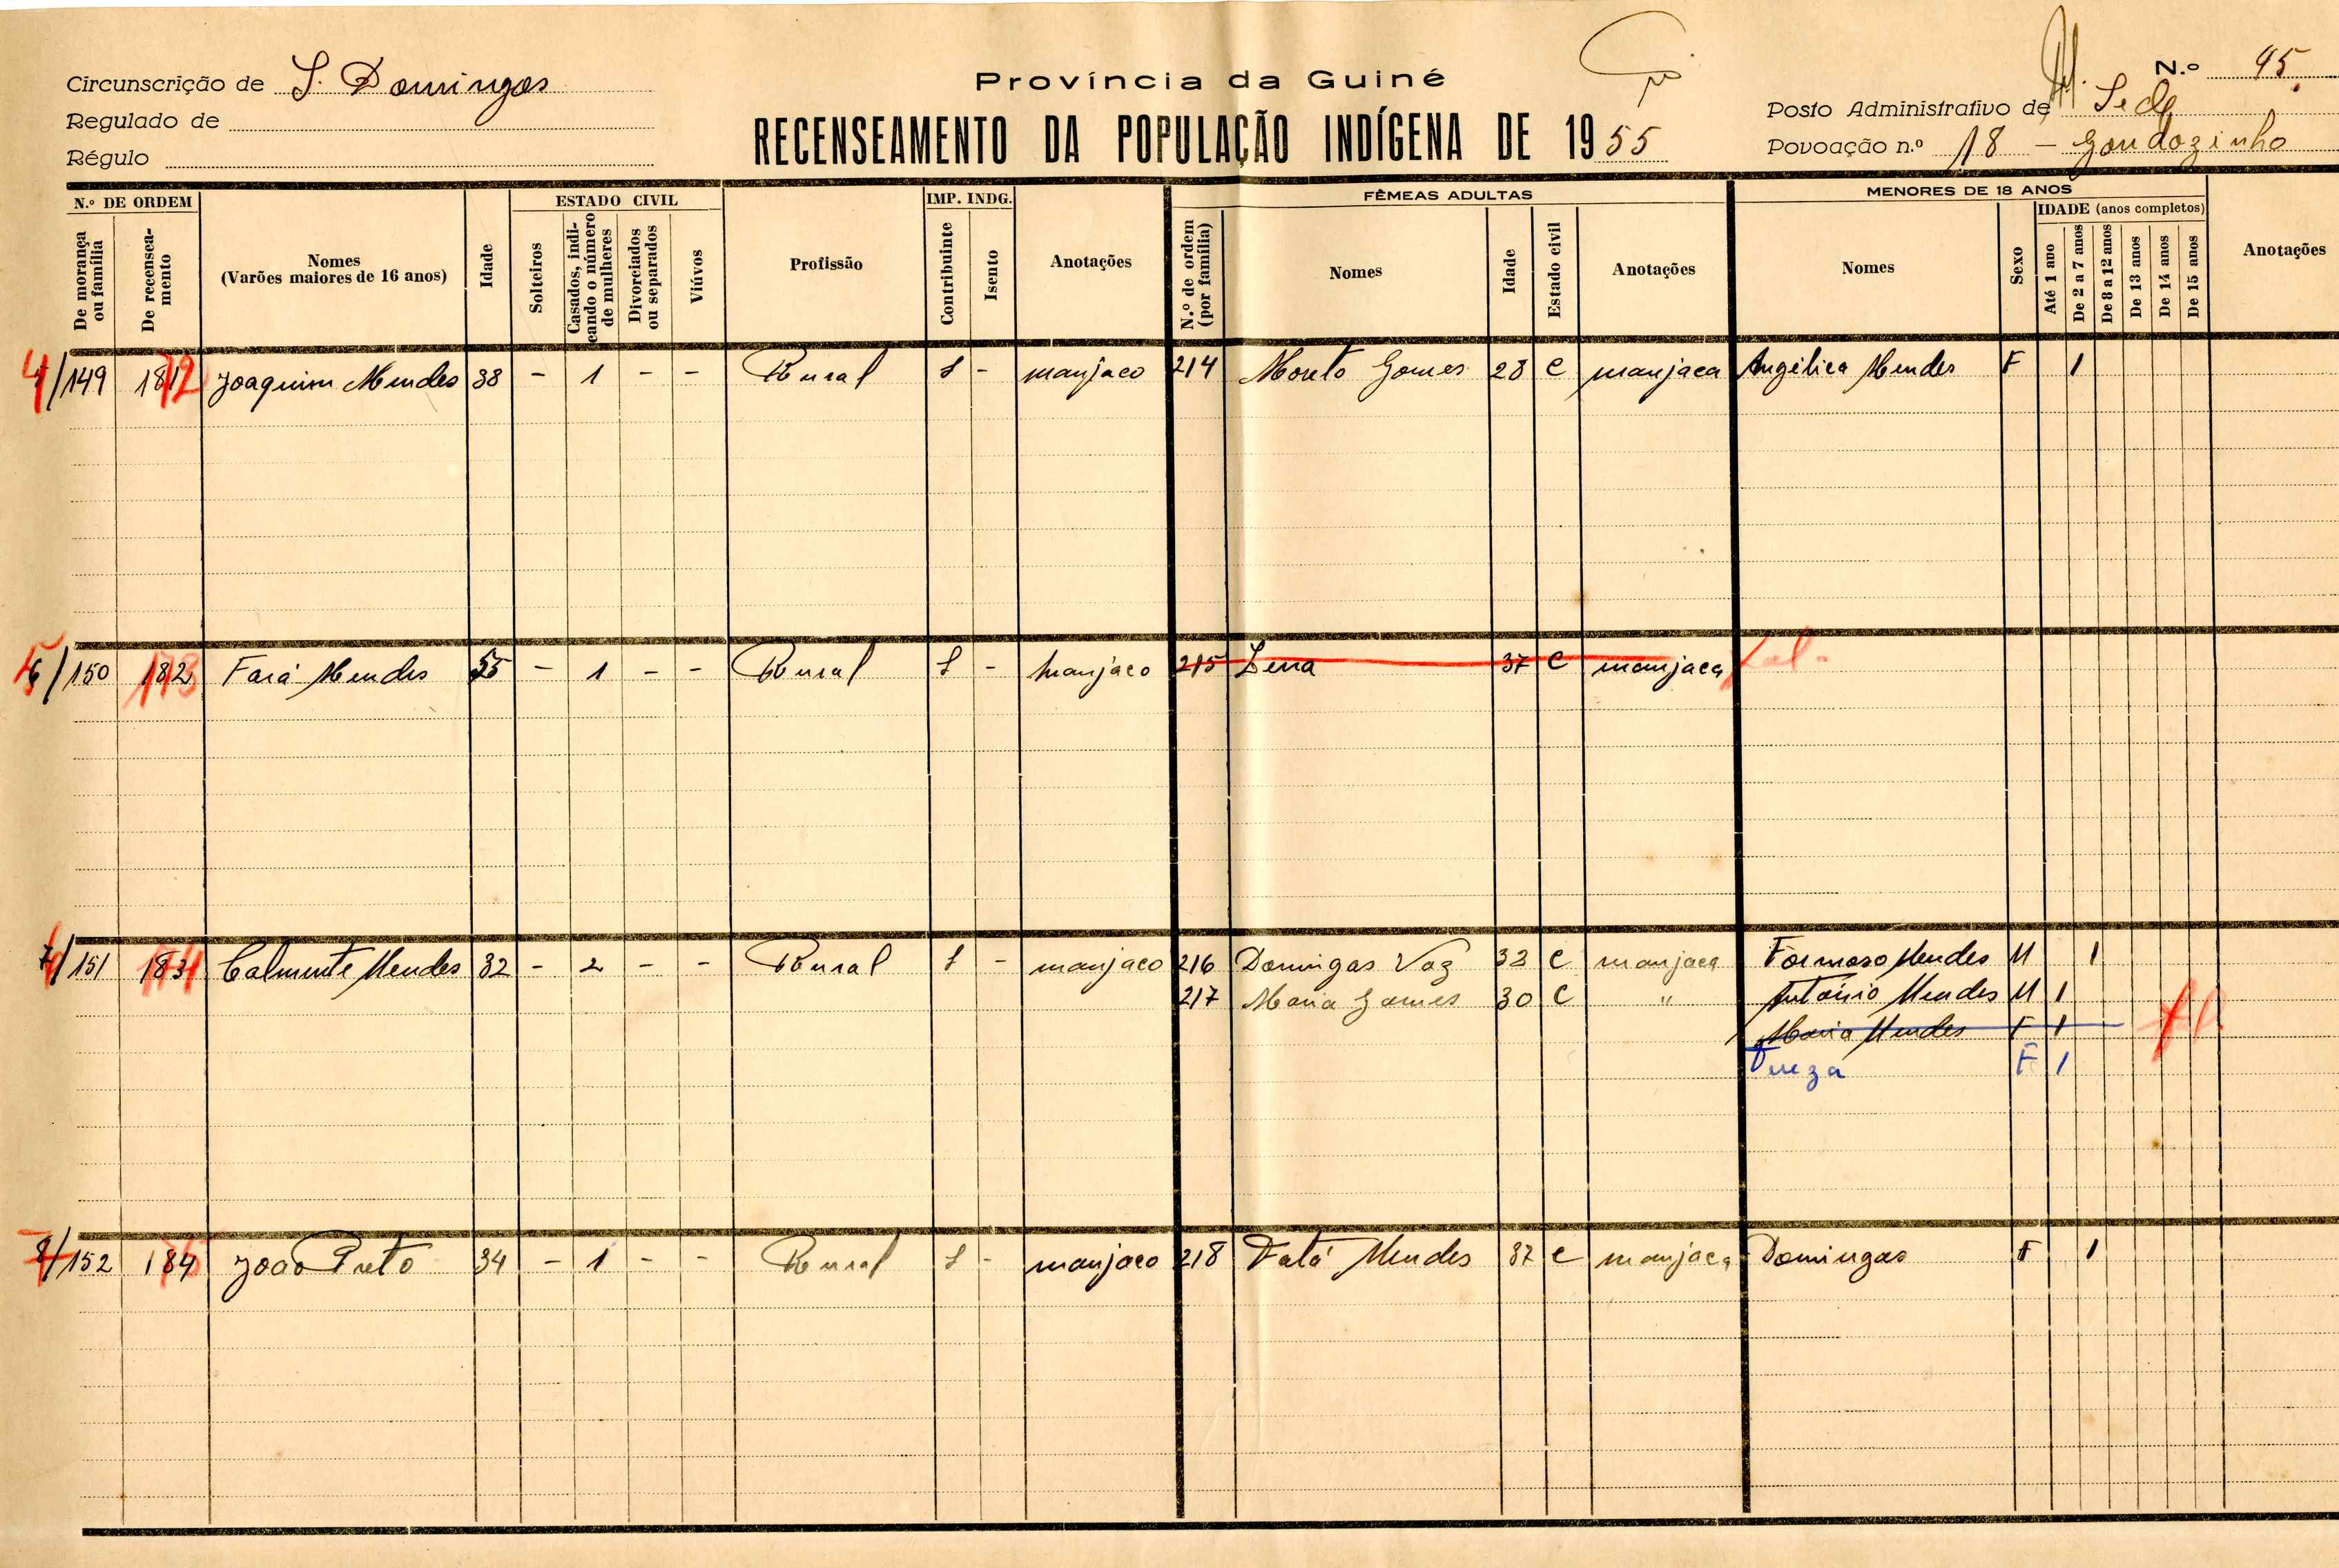 Circunscrição de S. Domingos
Regulado de
Régulo
Província da Guiné
RECENSEAMENTO DA POPULAÇÃO INDÍGENA DE 1955
N.º 95
Posto Administrativo de Sede
Povoação n.º 18 - Gondozinho
N.º DE ORDEM
De morança ou família
De recensea-mento
Nomes
(Varões maiores de 16 anos)
Idade
ESTADO CIVIL
Solteiros
Casados, indi-cando o número de mulheres
Divorciados ou separados
Viúvos
Profissão
IMP. INDG.
Contribuinte
Isento
Anotações
FÊMEAS ADULTAS
N.º de ordem (por família)
Nomes
Idade
Estado civil
Anotações
MENORES DE 18 ANOS
Nomes
Sexo
IDADE (anos completos)
Até 1 ano
De 2 a 7 anos
De 8 a 12 anos
De 13 anos
De 14 anos
De 15 anos
Anotações
/149 Joaquim Mendes 38 - 1 - - Rural - manjaco 214 Gomes 28 C manjaca Angélica Mendes F 1
/150 182 Fará Mendes 55 - 1 - - Rural - manjaco 215 37 C manjaca
7/151 183 Calmunte Mendes 32 - 2 - - Rural - manjaco 216 Domingas Vaz 32 C manjaca Formoso Mendes M 1
217 Maria Gomes 30 C " António Mendes M 1
Maria Mendes F 1
F 1
8/152 184 João Preto 34 - 1 - - Rural - manjaco 218 Mendes 37 C manjaca Domingas F 1